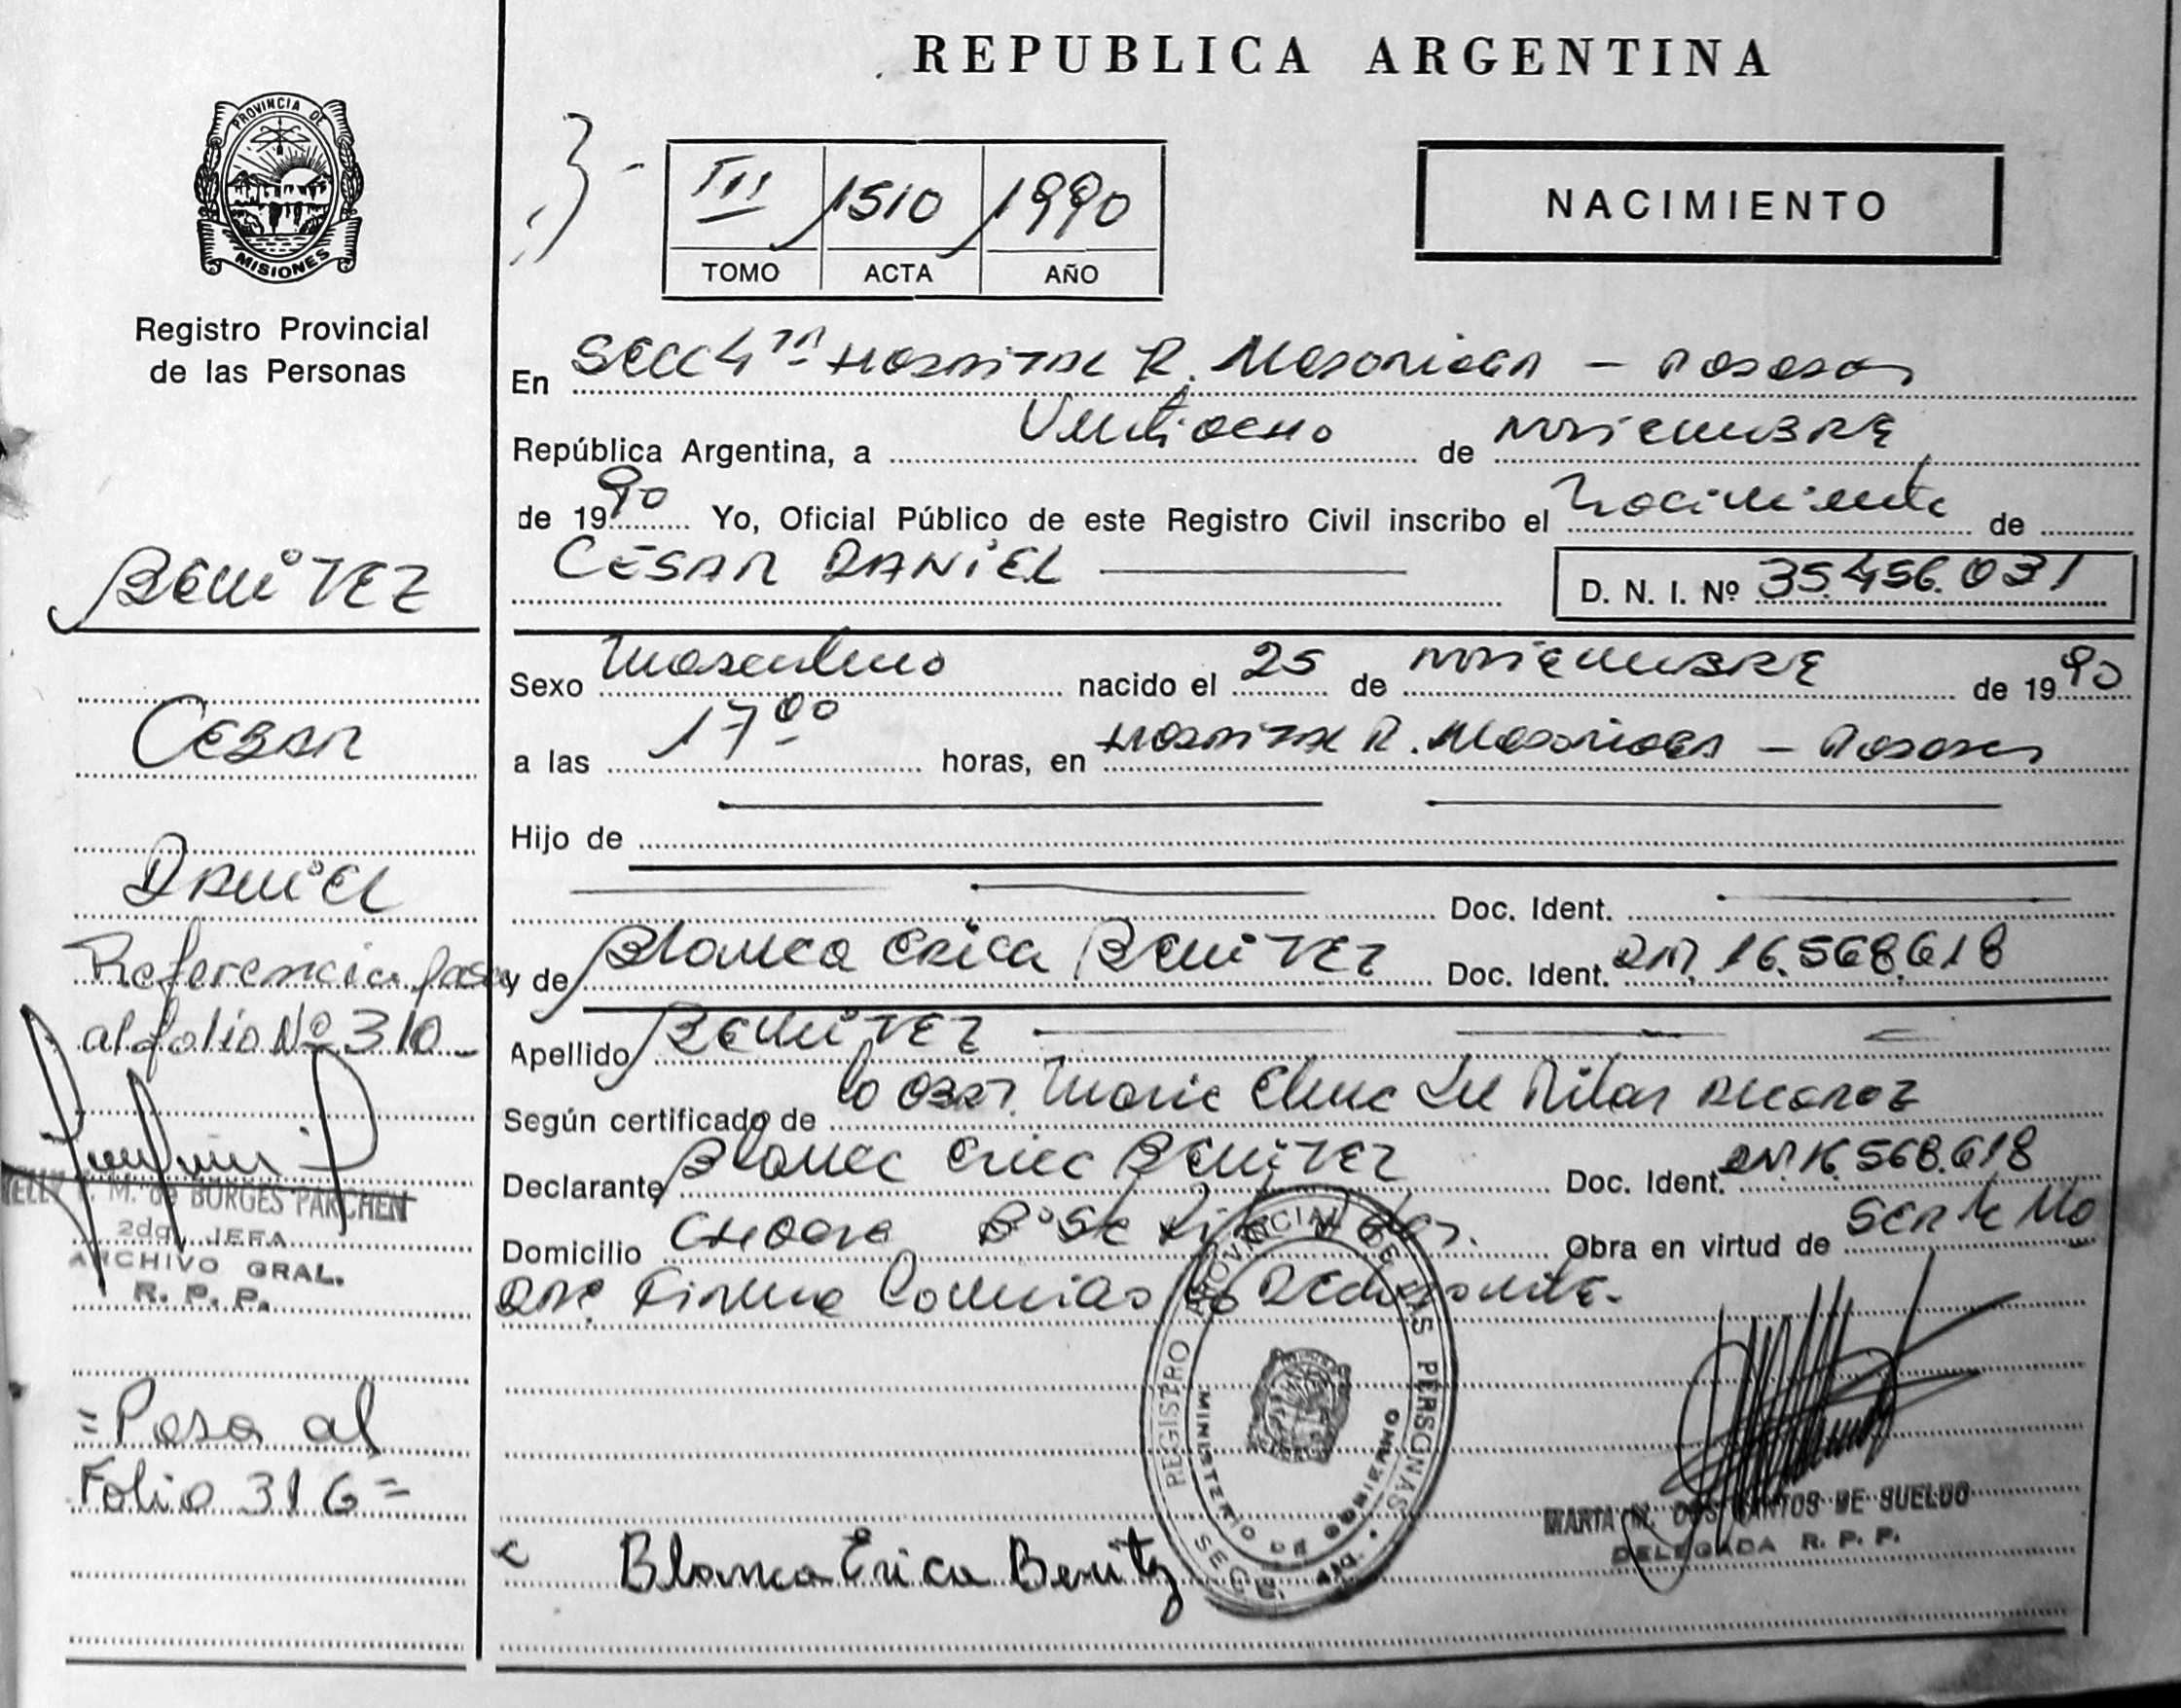 REPUBLICA ARGENTINA
PROVINCIA DE
MISIONES
Registro Provincial
de las Personas
III 1510 1990
TOMO ACTA AÑO
NACIMIENTO
En Secc 4ta Hospital R. Madariaga - Posadas
República Argentina, a Ventiocho de noviembre
de 1990 Yo, Oficial Público de este Registro Civil inscribo el Nacimiento de
CESAR DANIEL
D. N. I. Nº 35.456.031
Sexo Masculino nacido el 25 de noviembre de 1990
a las 17 00 horas, en Hospital R. Madariaga - Posadas
Hijo de
Doc. Ident.
y de Blanca Erica Benitez Doc. Ident. 16.568.618
Apellido Benitez
Según certificado de la Obst. Maria Elena del Pilar
Declarante Blanca Erica Benitez Doc. Ident. 16.568.618
Domicilio Chacra Obra en virtud de ser la
Firma la
Blanca Erica Benitz
BENITEZ
Cesar
Daniel
Referencia pasa
al folio Nº 310
M. de BORGES PARCHEN
2da. JEFA
ARCHIVO GRAL.
R. P. P.
= Pasa al
Folio 316 =
REGISTRO PROVINCIAL DE LAS PERSONAS
MINISTERIO DE GOBIERNO
MARTA M. DOS SANTOS DE SUELDO
DELEGADA R. P. P.